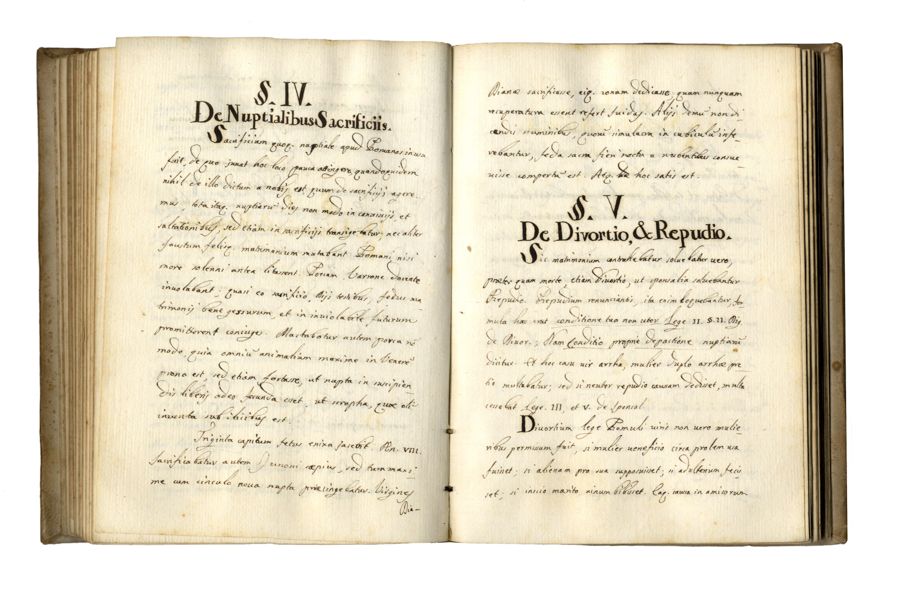 §. IV.
De Nuptialibus Sacrificiis.
Sacrificium quoq. nuptiale apud Romanos in usu
fuit, de quo juvat hoc loco pauca attingere, quandoquidem
nihil de illo dictum a nobis est, quum de sacrificijs agere-
mus, tota itaq. nuptiarum dies non modo in convivijs, et
saltationibus, sed etiam in sacrificijs transigebatur; nec aliter
faustum felixq. matrimonium putabant Romani, nisi
more solenni antea litassent. Porcam Varrone docente
immolabant: quasi eo sacrificio, Dijs testibus, fedus ma
trimonij bene gessurum, et in inviolabile futurum
promitterent coniuges. Mactabatur autem porca eo
modo, quia omnium animalium maxime in Venerem
prona est, sed etiam fortasse, ut nupta in suscipien
dis liberis adeo fecunda esset, ut scropha, quae
inventa sub ilicibus est
Triginta capitum fetus enixa jacebit. Æn. VIII.
Sacrificabatur autem Junoni saepius, sed tum maxi
me cum cinculo nova nupta praecingebatur. Virgines
Dia-
Dianae sacrificasse, eiq. zonam dedicasse quam nunquam
recuperatura essent refert Suidas. Alijs demum non di
cendis numinibus, quorum simulacra in cubiculum infe
rebantur, foeda sacra fieri noctu a nubentibus consue
visse compertum est. Atq. de hoc satis est.
§. V.
De Divortio, & Repudio.
Sic matrimonium contrahebatur solvebatur vero,
praeterquam morte, etiam Divortio, ut sponsalia solvebantur
Repudio. Repudium renunciantis, ita enim loquebantur, for
mula haec erat conditione tua non utor. Lege II. §. II. Dig.
de Divor., Nam Conditio, proprie de pactione nuptiarum
dicitur. Et hoc casu vir arrha, mulier duplo arrhae pre
tio multabatur; sed si neuter repudio causam dedisset, multa
cessabat Lege III, et V. de sponsal.
Divortium lege Romuli viris non vero mulie
ribus permissum fuit, si mulier veneficio circa prolem usa
fuisset; si alienam pro sua supposuisset; si adulterium fecis
set; si inscio marito vinum bibisset. Eaq. causa in amicorum